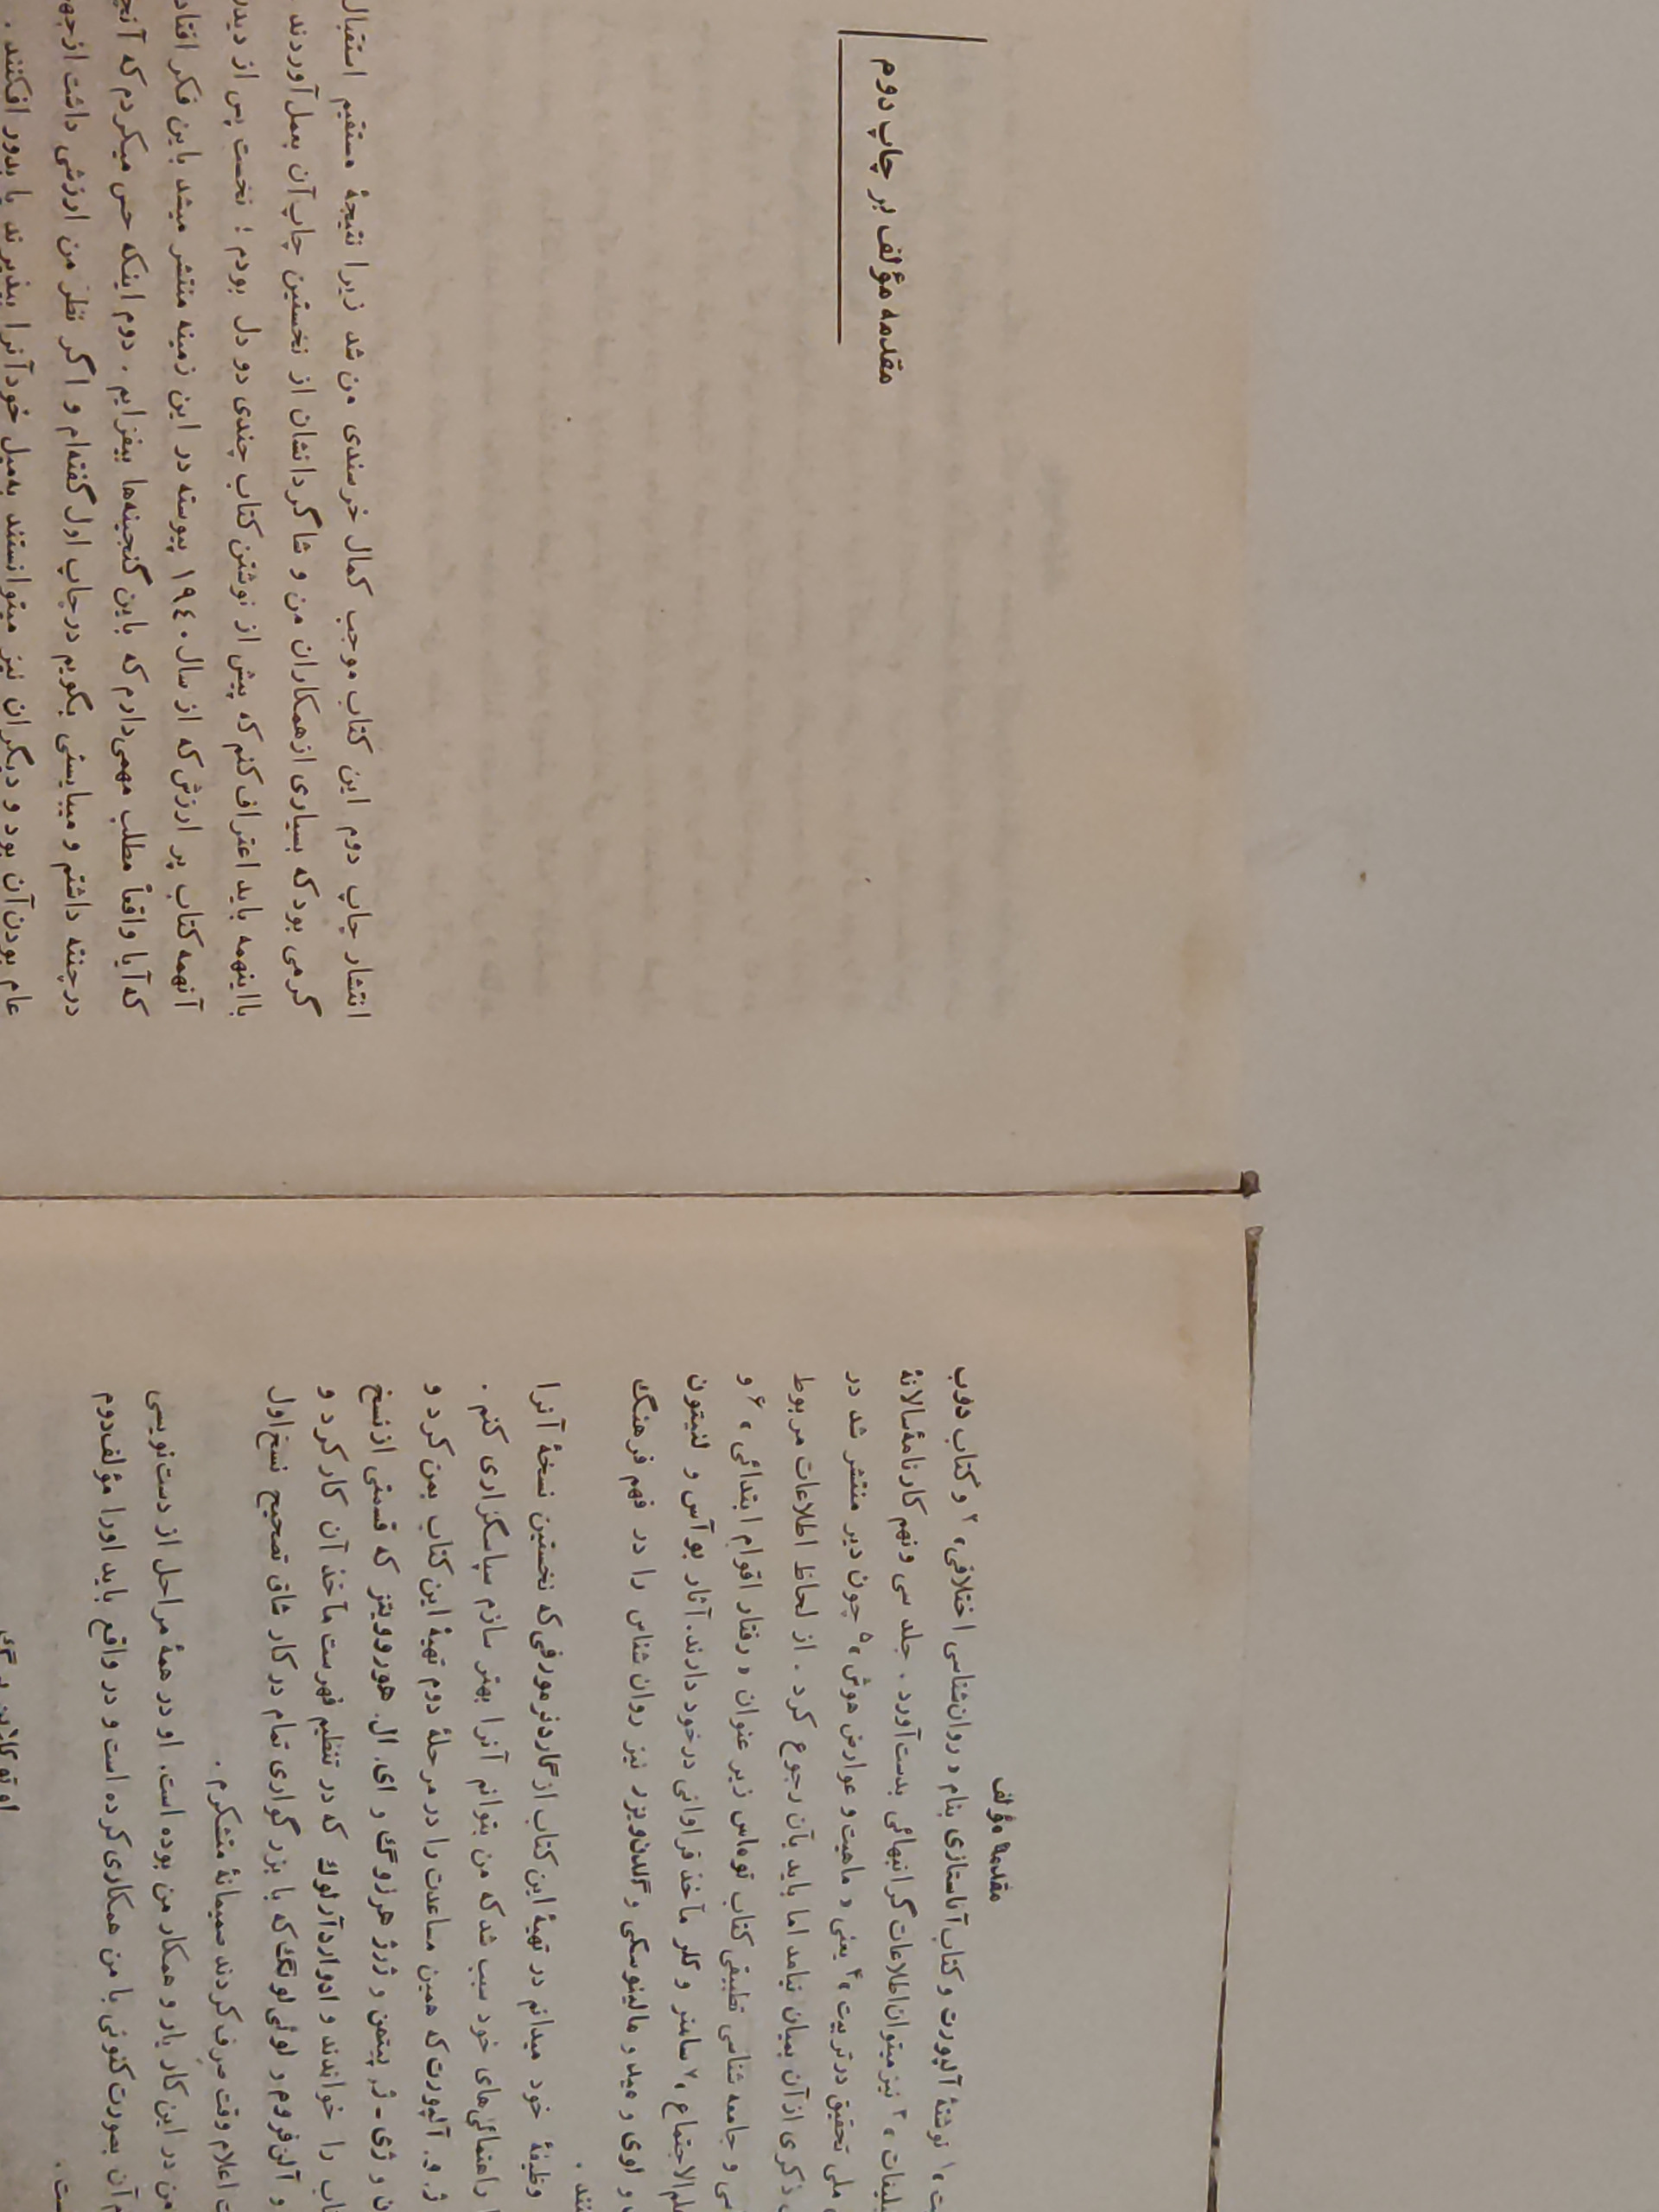 مقدمه مؤلف
نوشتهٔ آلپورت و کتاب آناستازی بنام « روان‌شناسی اختلافی »۲ و کتاب دوب
نیز میتوان اطلاعات گرانبهائی بدست آورد. جلد سی و نهم کارنامهٔ سالانهٔ
ملی تحقیق در تربیت »۴ یعنی « ماهیت و عوارض هوش »۵ چون دیر منتشر شد در
ذکری از آن بمیان نیامد اما باید بآن رجوع کرد. از لحاظ اطلاعات مربوط
و جامعه شناسی تطبیقی کتاب توماس زیر عنوان « رفتار اقوام ابتدائی »۶ و
علم‌الاجتماع »۷ سامنر و کلر مآخذ فراوانی درخود دارند. آثار بوآس و لنیتون
و لوی و مید و مالینوسکی و گلدن‌ویزر نیز روان شناس را در فهم فرهنگ
وظیفهٔ خود میدانم در تهیهٔ این کتاب از گاردنر مورفی که نخستین نسخهٔ آنرا
راهنمائی‌های خود سبب شد که من بتوانم آنرا بهتر سازم سپاسگزاری کنم.
ژ. و. آلپورت که همین مساعدت را در مرحلهٔ دوم تهیهٔ این کتاب بمن کرد و
و ژی - ژ. پیتمن و ژرژ هرزوگ و ای. ال. هوروویتز که قسمتی از نسخ
را خواندند و ادوارد آرلوک که در تنظیم فهرست مآخذ آن کار کرد و
و آلن فروم و لوئی لونگ که با بزرگواری تمام در کار شاق تصحیح نسخ اول
اعلام وقت صرف کردند صمیمانهٔ متشکرم.
من در این کار یار و همکار من بوده است. او در همهٔ مراحل از دست نویسی
آن بصورت کنونی با من همکاری کرده است و در واقع باید او را مؤلف دوم
مقدمه مؤلف بر چاپ دوم
انتشار چاپ دوم این کتاب موجب کمال خرسندی من شد زیرا نتیجهٔ مستقیم استقبال
گرمی بود که بسیاری از همکاران من و شاگردانشان از نخستین چاپ آن بعمل آوردند.
با اینهمه باید اعتراف کنم که پیش از نوشتن کتاب چندی دو دل بودم؛ نخست پس از
آنهمه کتاب پر ارزش که از سال ۱۹٤۰ پیوسته در این زمینه منتشر میشد باین فکر
که آیا واقعاً مطلب مهمی دارم که باین گنجینه‌ها بیفزایم. دوم اینکه حس میکردم که
در چنته داشتم و میبایستی بگویم در چاپ اول گفته‌ام و اگر نظر من ارزشی داشت
عام بودن آن بود و دیگران نیز میتوانستند به میل خود آنرا بپذیرند یا بدور افکنند.